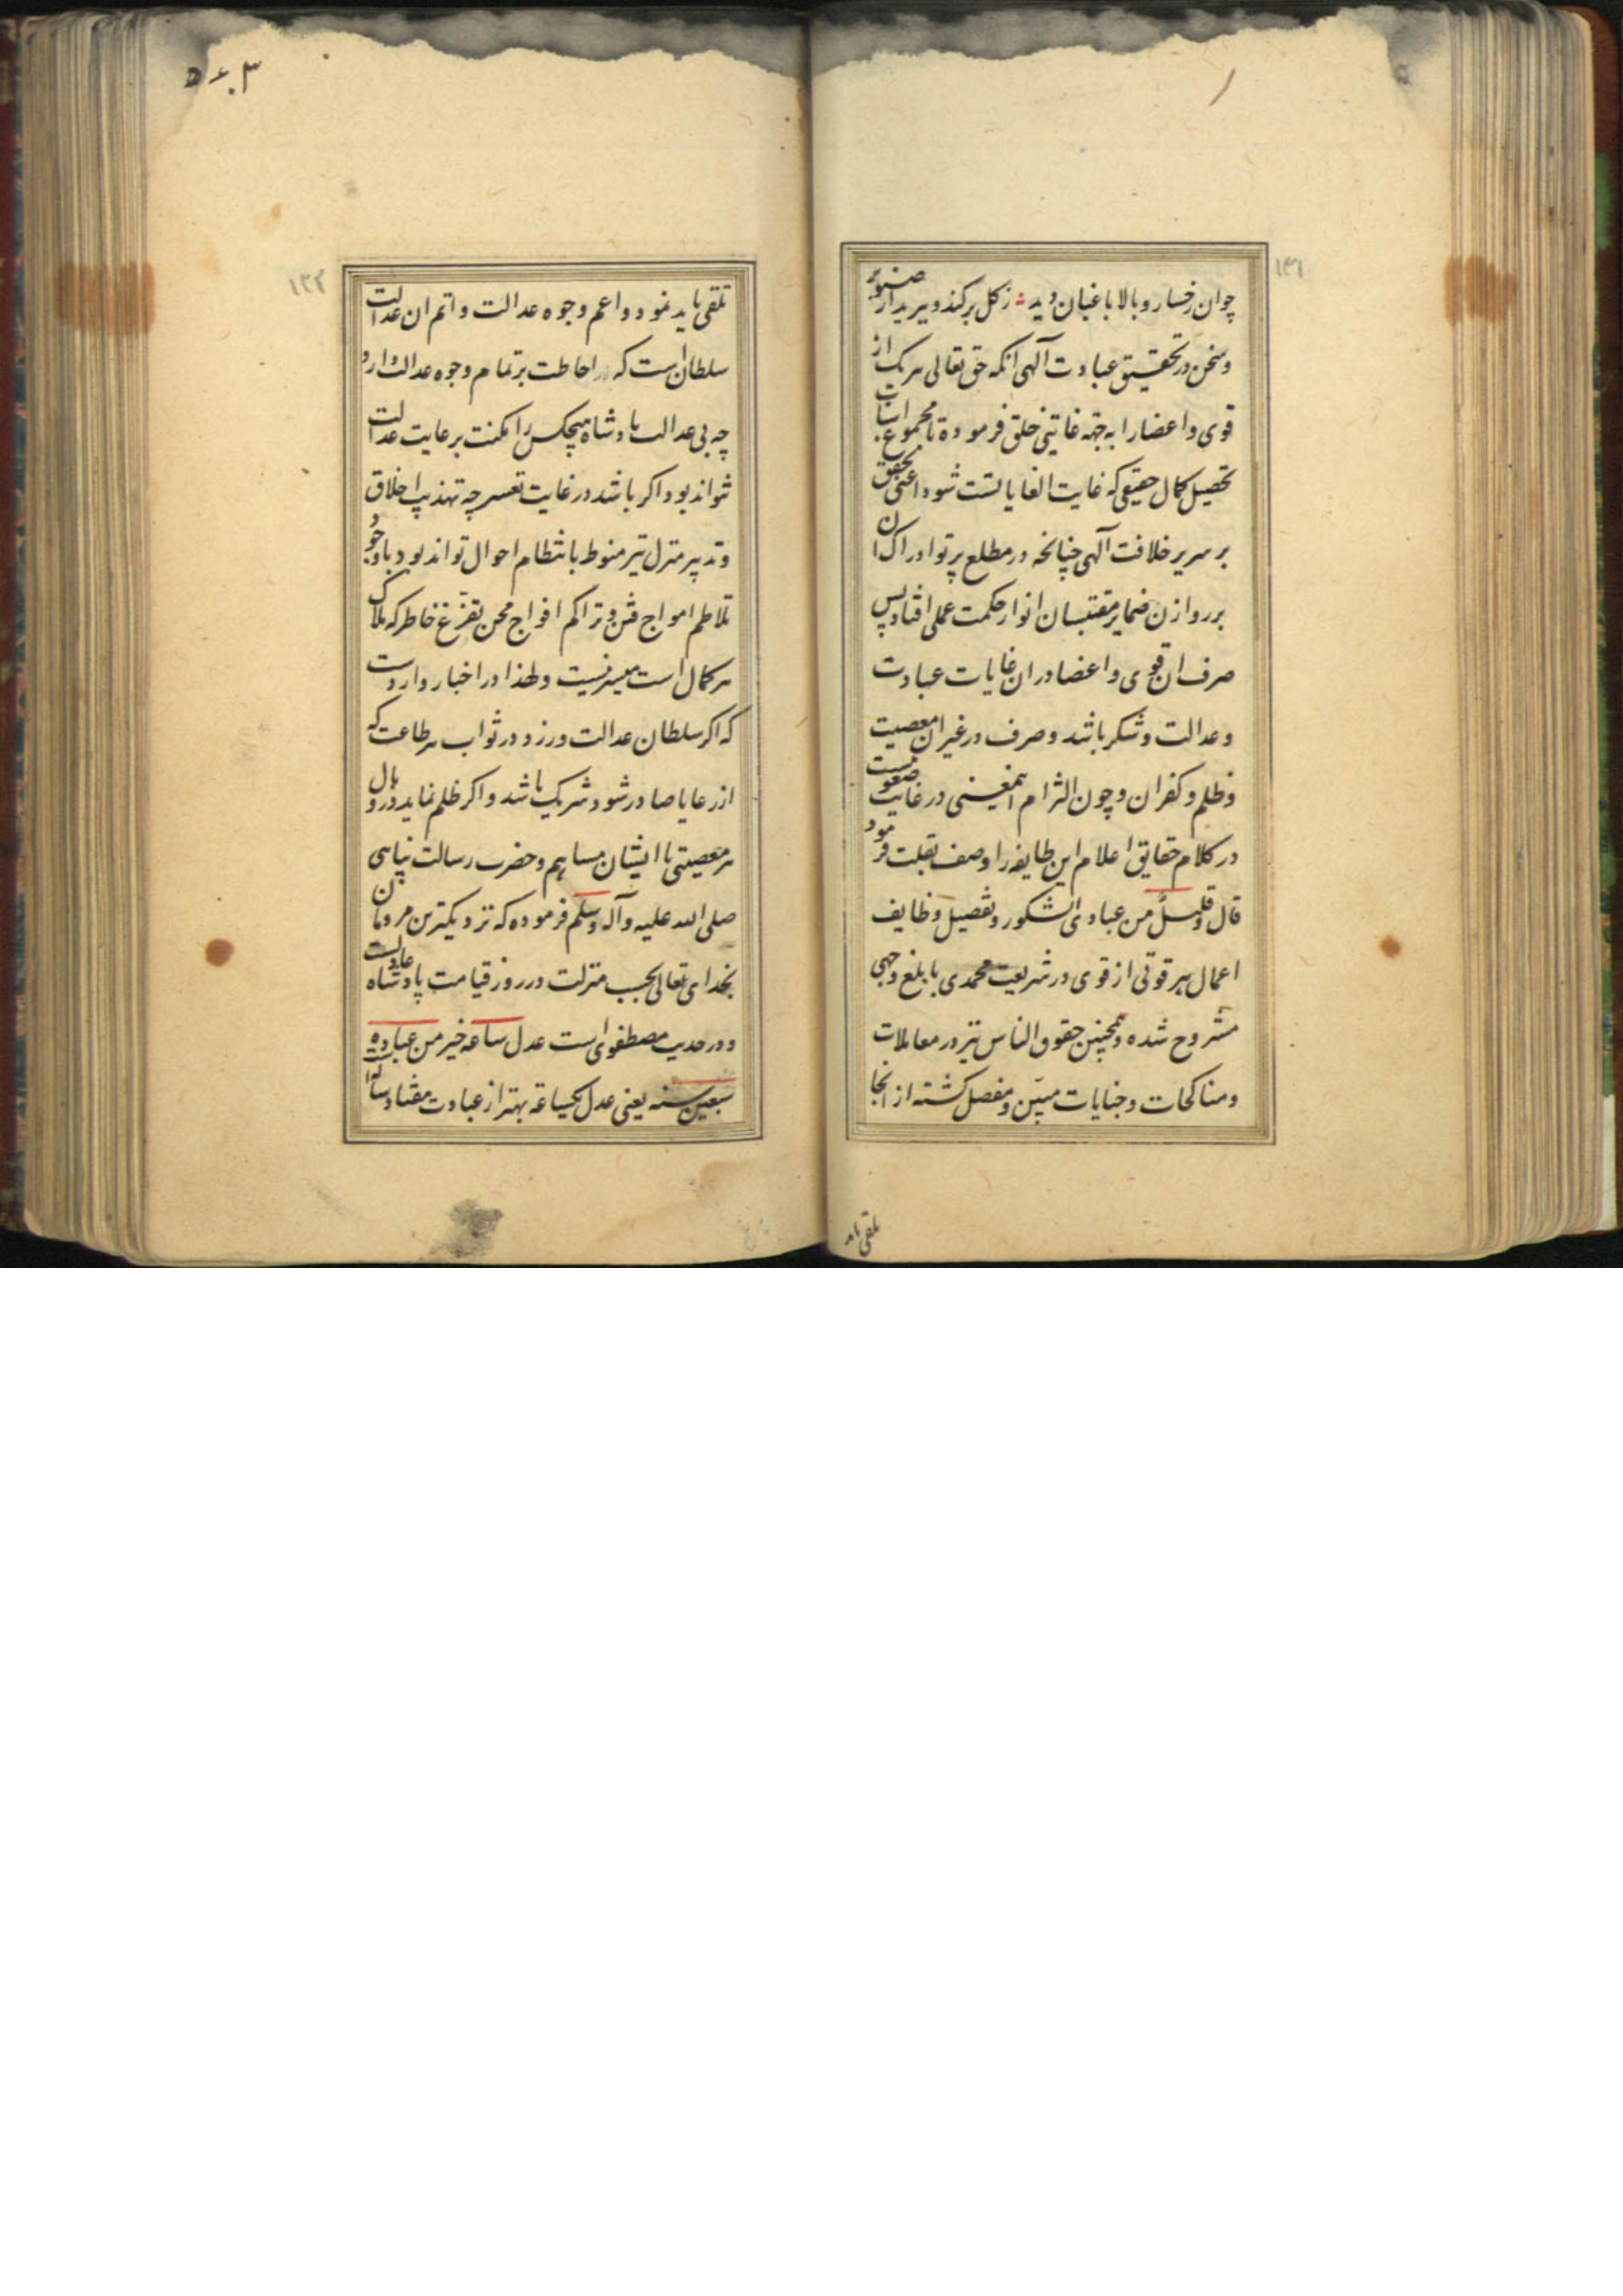 ۱۳۱
چوان رخسار و بالا باغبان دید زکل برکند و ببرید از صنوبر
و سخن در تحقیق عبادت آلهی آنکه حق تعالی هریک از
قوی و اعضا را به جهة غایتی خلق فرموده تا مجموع اسباب
تحصیل کمال حقیقی که غایت الغایاتست شود اعنی تحقق
بر سریر خلافت آلهی چنانخه در مطلع پرتو ادراک ان
بر روازن ضمایر مقتبسان انوار حکمت عملی افتاد پس
صرف ان قوی و اعضا در ان غایات عبادت
و عدالت و شکر باشد و صرف در غیر ان معصیت
و ظلم و کفران و چون التزام اینمعنی در غایت صعوبتست
در کلام حقایق اعلام این طایفه را وصف بقلت فرمود
قال و قلیلٌ من عبادی الشکور و تفصیل وظایف
اعمال هر قوتی از قوی در شریعت محمدی بابلغ وجهی
مشروح شده و همچنین حقوق الناس نیز در معاملات
و مناکحات و جنایات مبیّن و مفصل کشته از انجا
تلقی باید
۵۶۰۳
۱۳۲
تلقی باید نمود و اعم وجوه عدالت و اتم ان عدالت
سلطان است که احاطت بر تمام وجوه عدالت دارد
چه بی عدالت پادشاه هیچکس را مکنت بر عایت عدالت
نتواند بود و اکر باشد در غایت تعسر چه تهذیب اخلاق
و تدبیر منزل نیز منوط بانتظام احوال تواند بود و با وجود
تلاطم امواج فتن و تراکم افواج محن تفرّغ خاطر که ملاک
هر کمال است میسر نیست و لهذا در اخبار وارد است
که اکر سلطان عدالت ورزد در ثواب هر طاعت که
از رعایا صادر شود شریک باشد و اکر ظلم نماید در وبال
هر معصیتی با ایشان مساهم و حضرت رسالت پناهی
صلی الله علیه و آله و سلم فرموده که نزدیکترین مردمان
بخدای تعالی بحسب منزلت در روز قیامت پادشاه عادلست
و در حدیث مصطفوی است عدل ساعه خیر من عباده
سبعین سنه یعنی عدل یکساعة بهتر از عبادت هفتاد ساله است